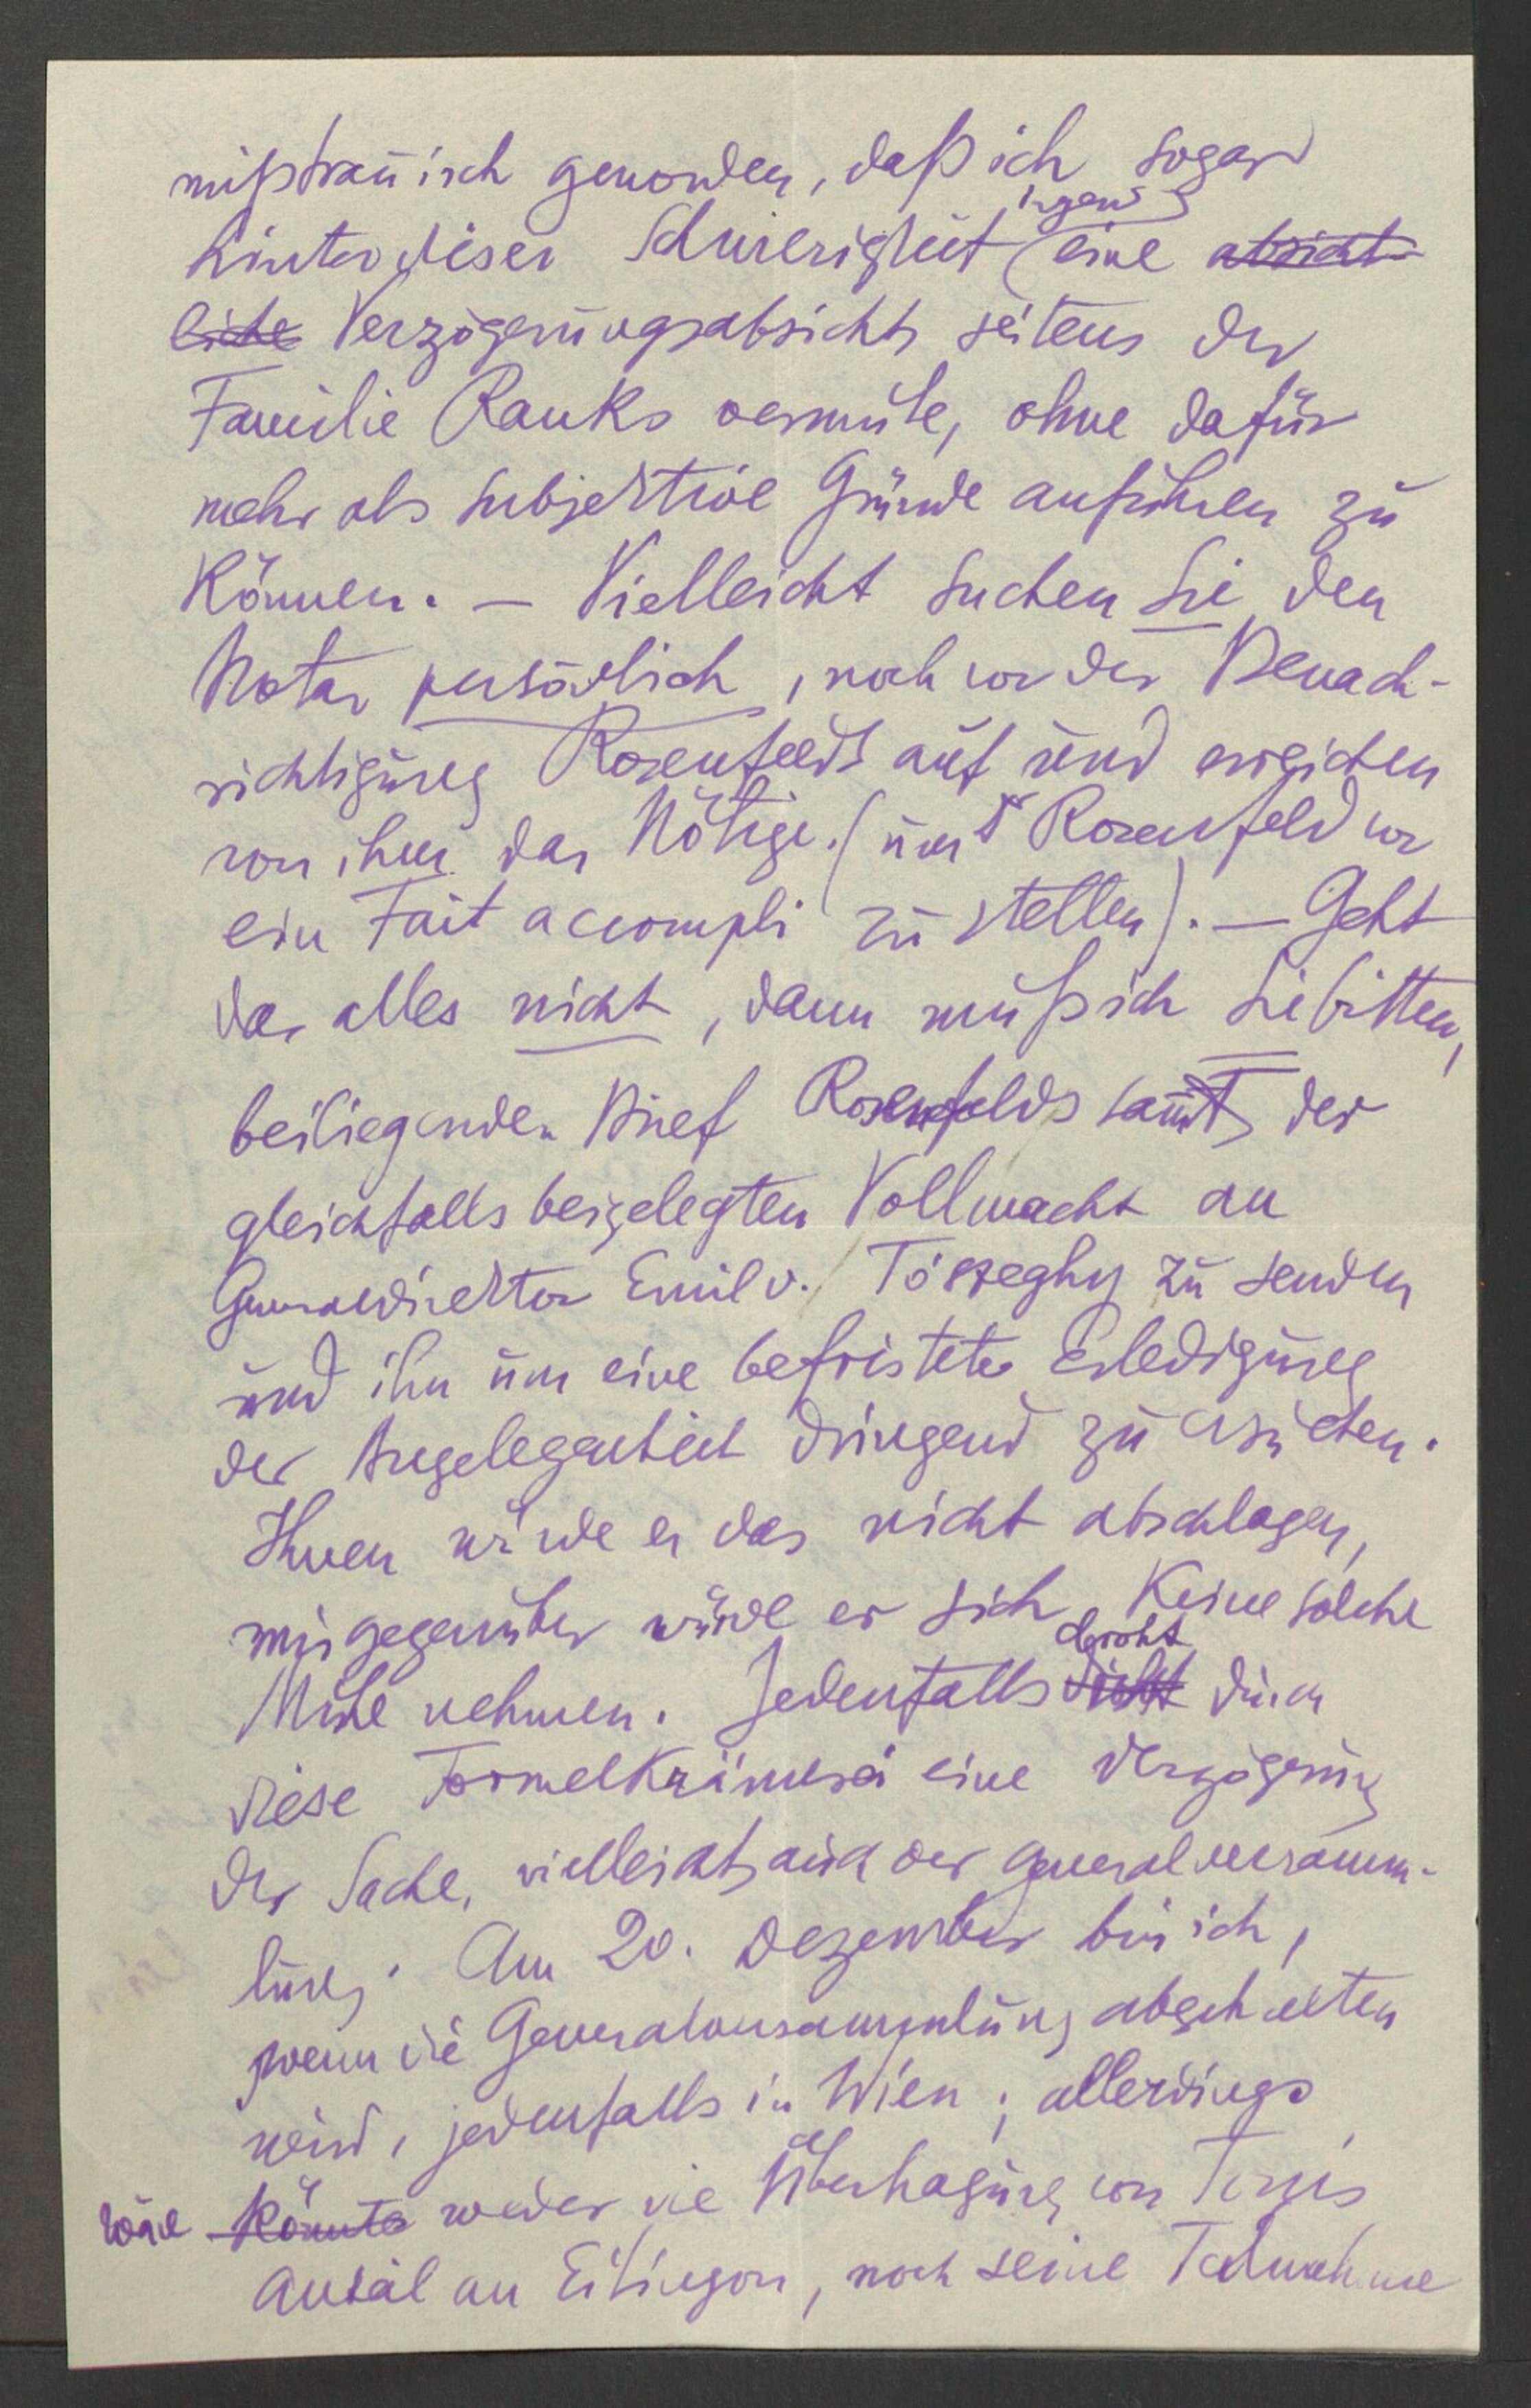 mißtrauisch geworden, daß ich sogar
hinter dieser Schwierigkeit irgend eine absicht-
liche Verzögerungsabsicht seitens der
Familie Ranks vermute, ohne dafür
mehr als subjektive Gründe anführen zu
können. — Vielleicht suchen Sie den
Notar persönlich, noch vor der Benach-
richtigung Rosenfelds auf und erreichen
von ihm das Nötige. (um Rosenfeld vor
ein Fait accompli zu stellen). — Geht
das alles nicht, dann muß ich Sie bitten,
beiliegenden Brief Rosenfelds samt der
gleichfalls beigelegten Vollmacht an
Generaldirektor Emil v. Tószeghy zu senden
und ihn um eine befristete Erledigung
der Angelegenheit dringend zu ersuchen.
Ihnen würde er das nicht abschlagen,
mir gegenüber würde er sich keine solche
Mühe nehmen. Jedenfalls droht durch
diese Formelkrämerei eine Verzögerung
der Sache, vielleicht auch der Generalversamm-
lung. Am 20. Dezember bin ich,
wenn die Generalversammlung abgehalten
wird, jedenfalls in Wien; allerdings
wäre könnte weder die Übertragung von Tonis
Anteil an Eitingon, noch seine Teilnahme